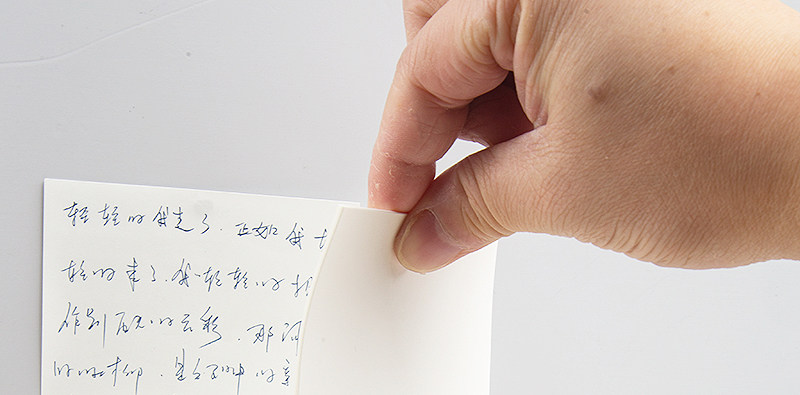 轻轻的我走了.正如我
轻的来了.我轻轻的招
作别西天的云彩.那河
的 柳.是夕阳中的